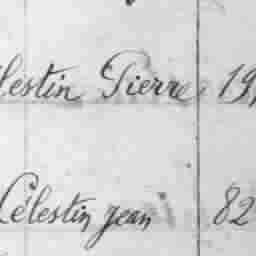 lestin Pierre 19,
Célestin jean 82